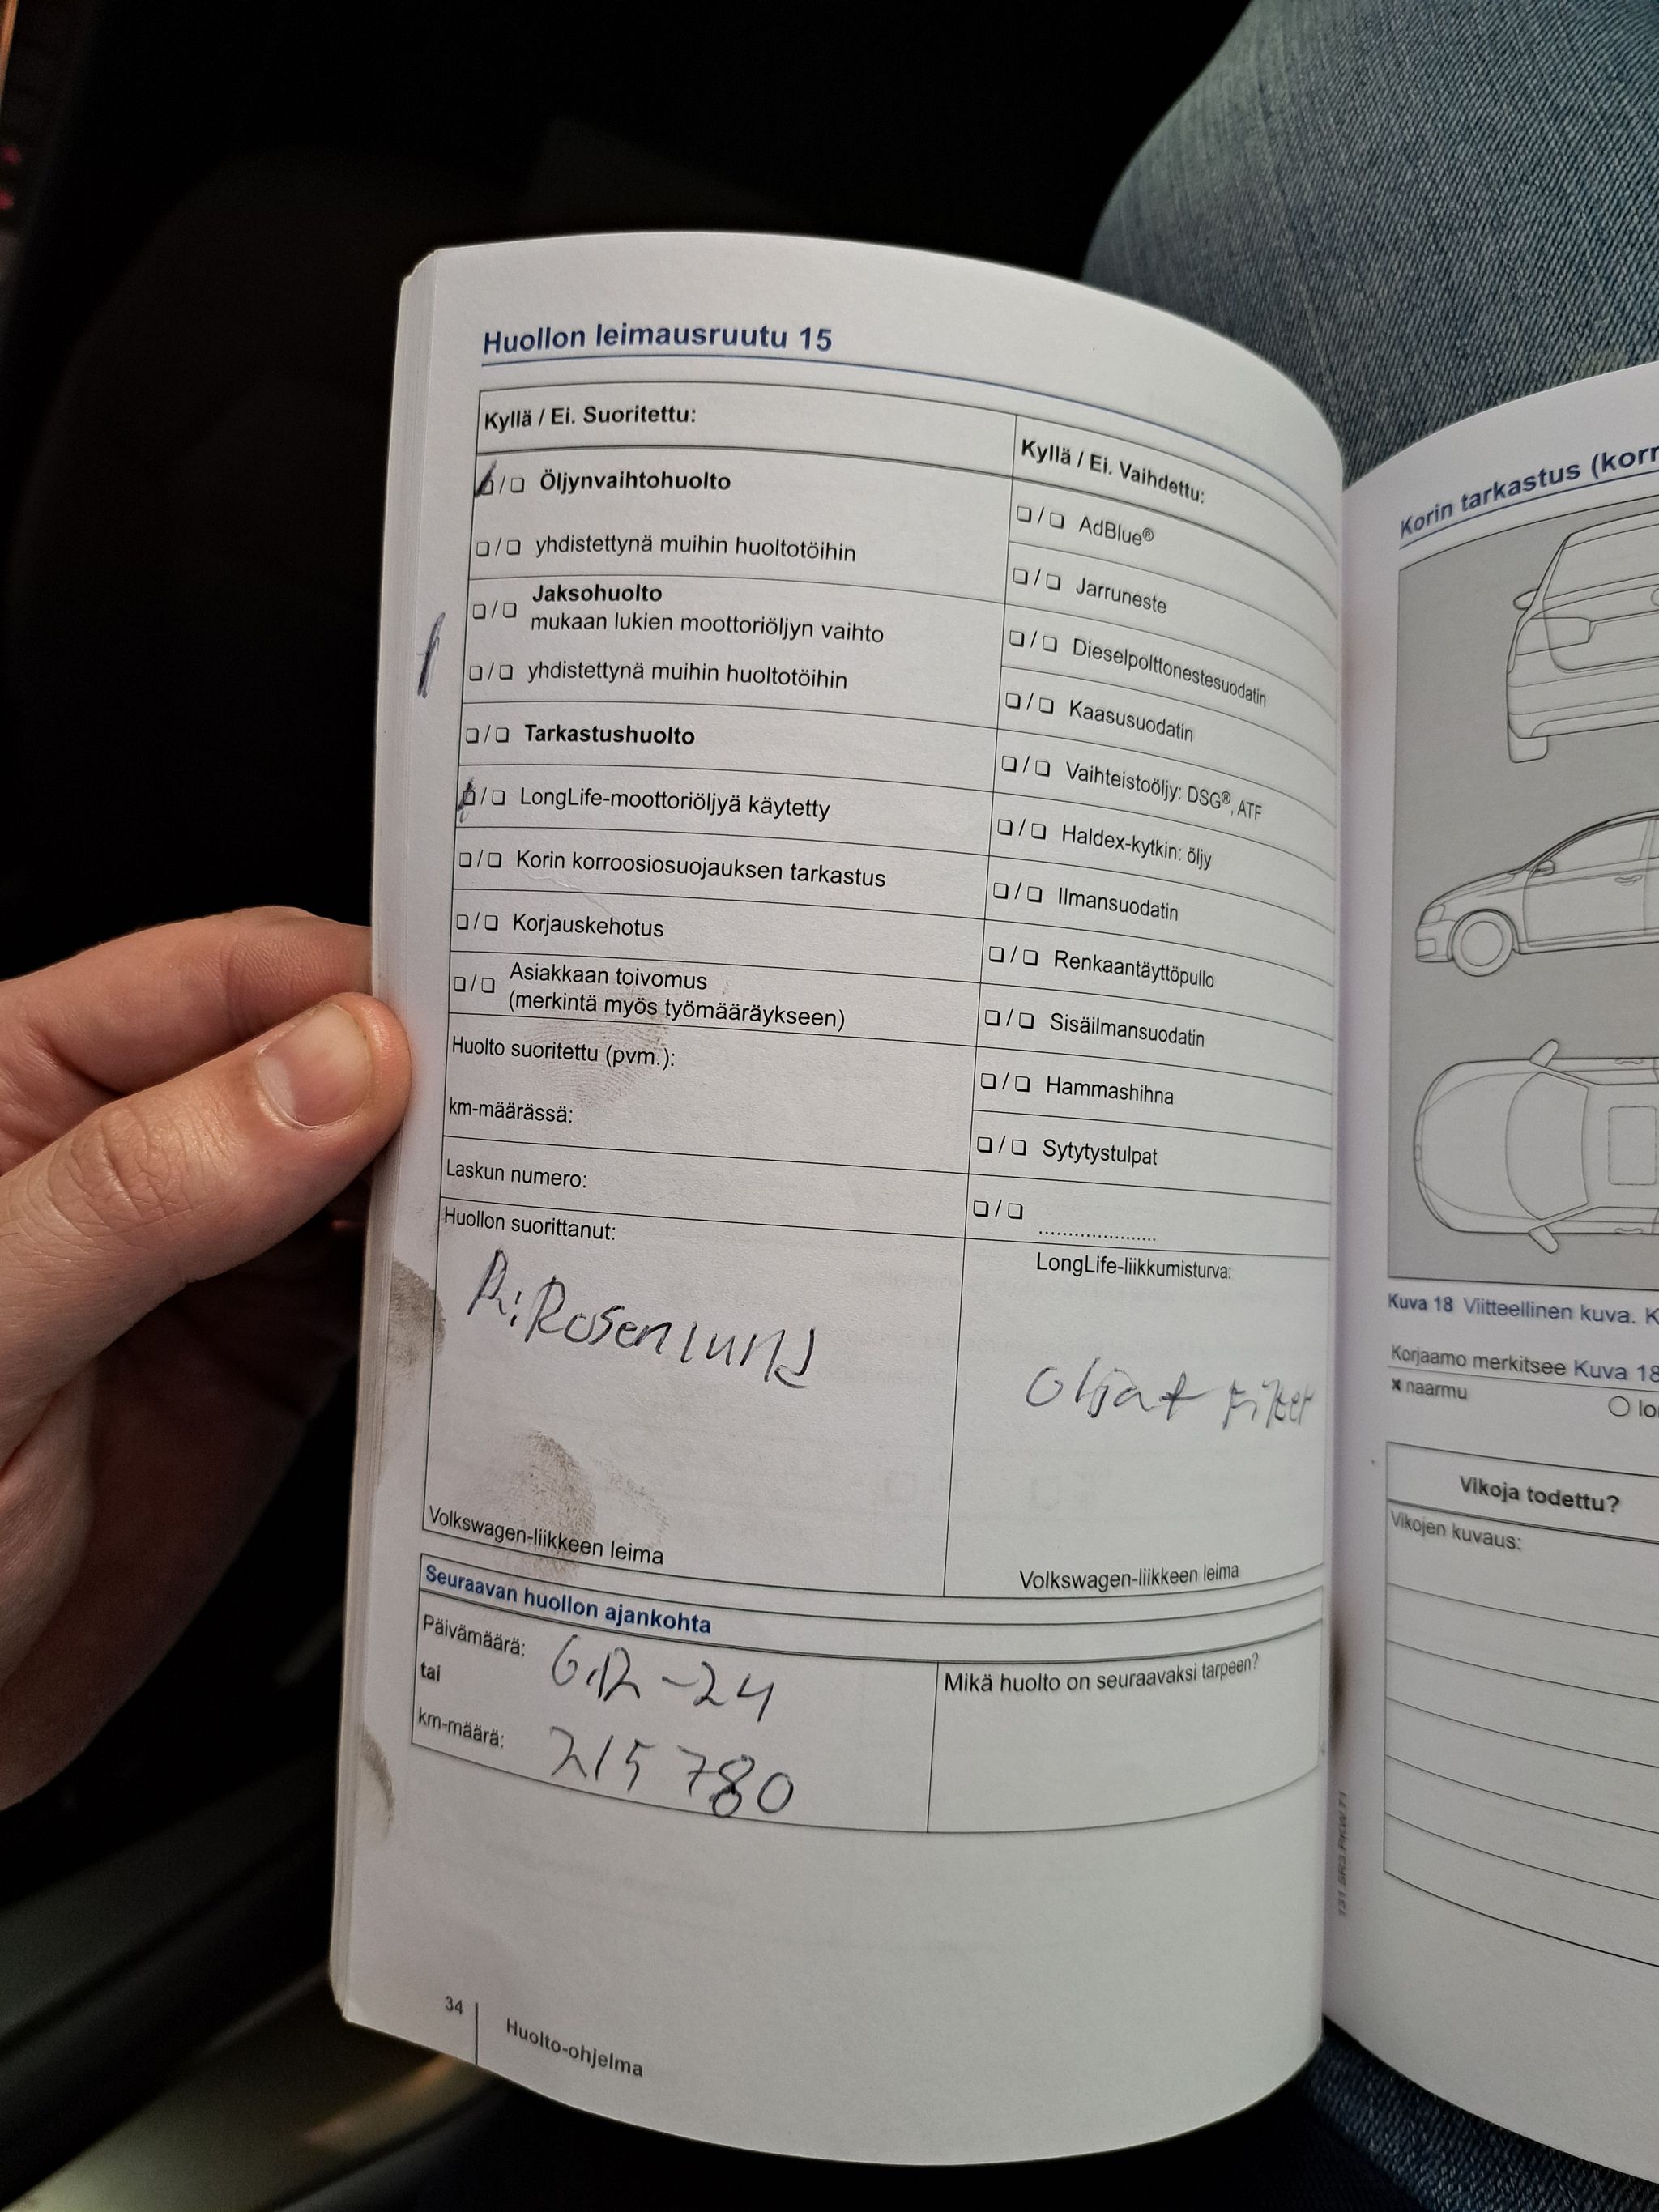 Huollon leimausruutu 15
Kyllä / Ei. Suoritettu:
❏/❏ Öljynvaihtohuolto
❏/❏ yhdistettynä muihin huoltotöihin
❏/❏ Jaksohuolto
mukaan lukien moottoriöljyn vaihto
❏/❏ yhdistettynä muihin huoltotöihin
❏/❏ Tarkastushuolto
❏/❏ LongLife-moottoriöljyä käytetty
❏/❏ Korin korroosiosuojauksen tarkastus
❏/❏ Korjauskehotus
❏/❏ Asiakkaan toivomus
(merkintä myös työmääräykseen)
Huolto suoritettu (pvm.):
km-määrässä:
Laskun numero:
Huollon suorittanut:
Rosenlund
Volkswagen-liikkeen leima
Kyllä / Ei. Vaihdettu:
❏/❏ AdBlue®
❏/❏ Jarruneste
❏/❏ Dieselpolttonestesuodatin
❏/❏ Kaasusuodatin
❏/❏ Vaihteistoöljy: DSG®, ATF
❏/❏ Haldex-kytkin: öljy
❏/❏ Ilmansuodatin
❏/❏ Renkaantäyttöpullo
❏/❏ Sisäilmansuodatin
❏/❏ Hammashihna
❏/❏ Sytytystulpat
❏/❏ .....................
LongLife-liikkumisturva:
Volkswagen-liikkeen leima
Seuraavan huollon ajankohta
Päivämäärä: 6.12-24
tai
km-määrä: 215 780
Mikä huolto on seuraavaksi tarpeen?
34
Huolto-ohjelma
Korin tarkastus (korr
Kuva 18 Viitteellinen kuva. K
Korjaamo merkitsee Kuva 18
x naarmu
Vikoja todettu?
Vikojen kuvaus: